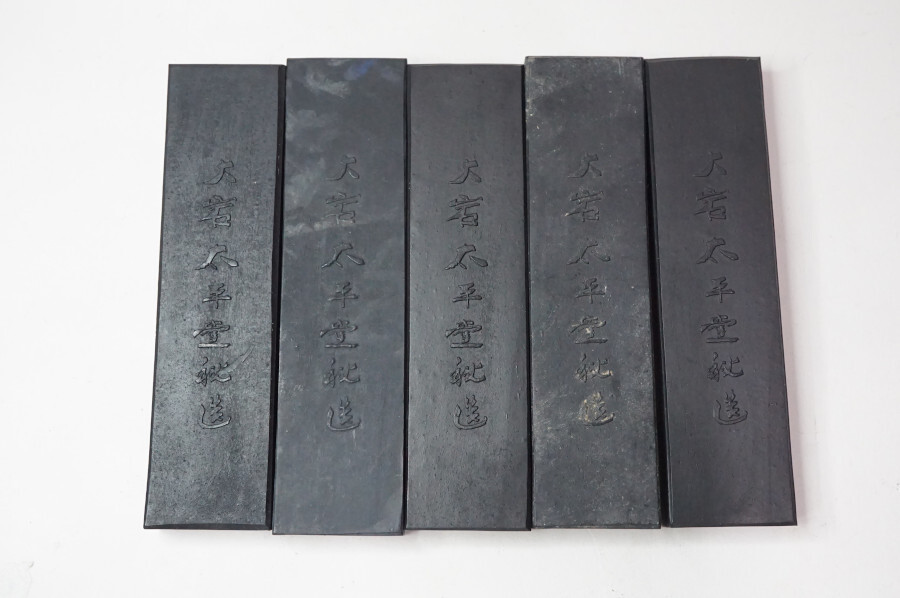 大岩太平堂秘造
大岩太平堂秘造
大岩太平堂秘造
大岩太平堂秘造
大岩太平堂秘造